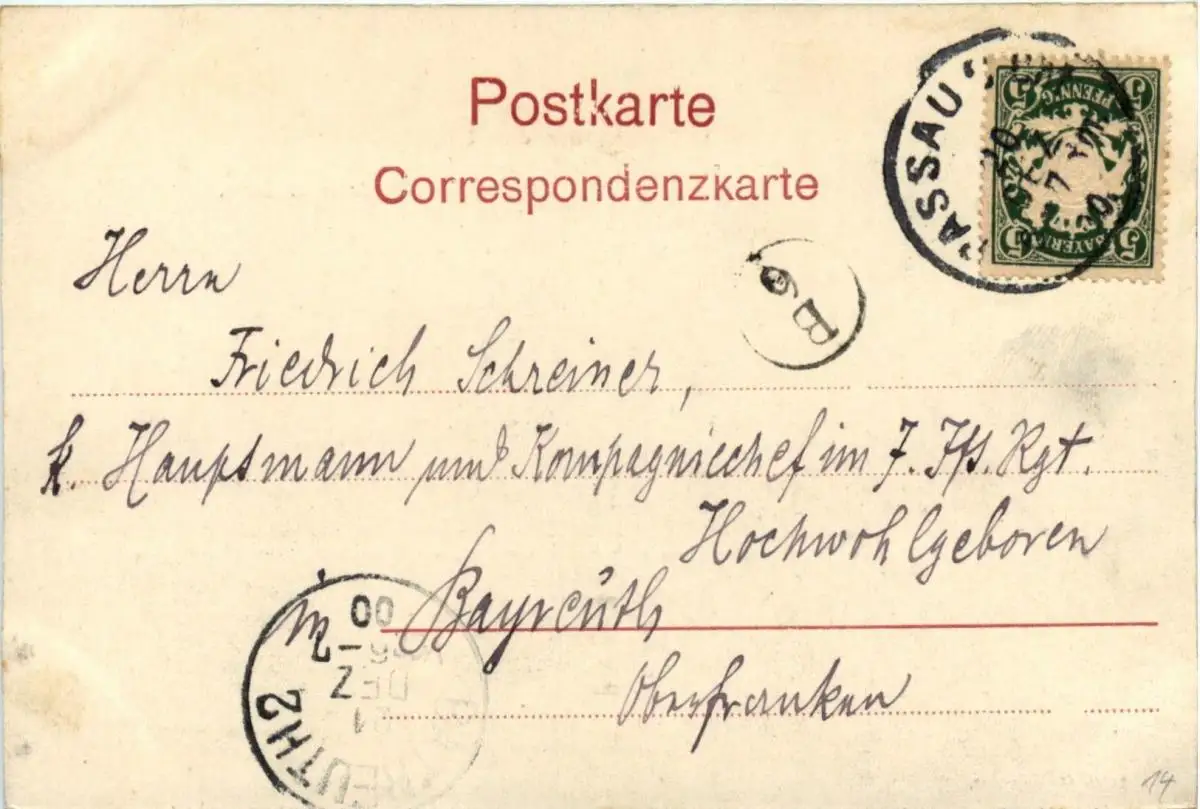 Postkarte
Correspondenzkarte
PASSAU
20
DEZ
7
00
5 PFENNIG 5
5 BAYERN 5
B6
Herrn
Friedrich Schreiner,
k. Hauptmann und Kompagniechef im 7. Jf. Rgt.
Hochwohlgeboren
in Bayreuth
Oberfranken
00
DEZ
21
REUTH 2
14